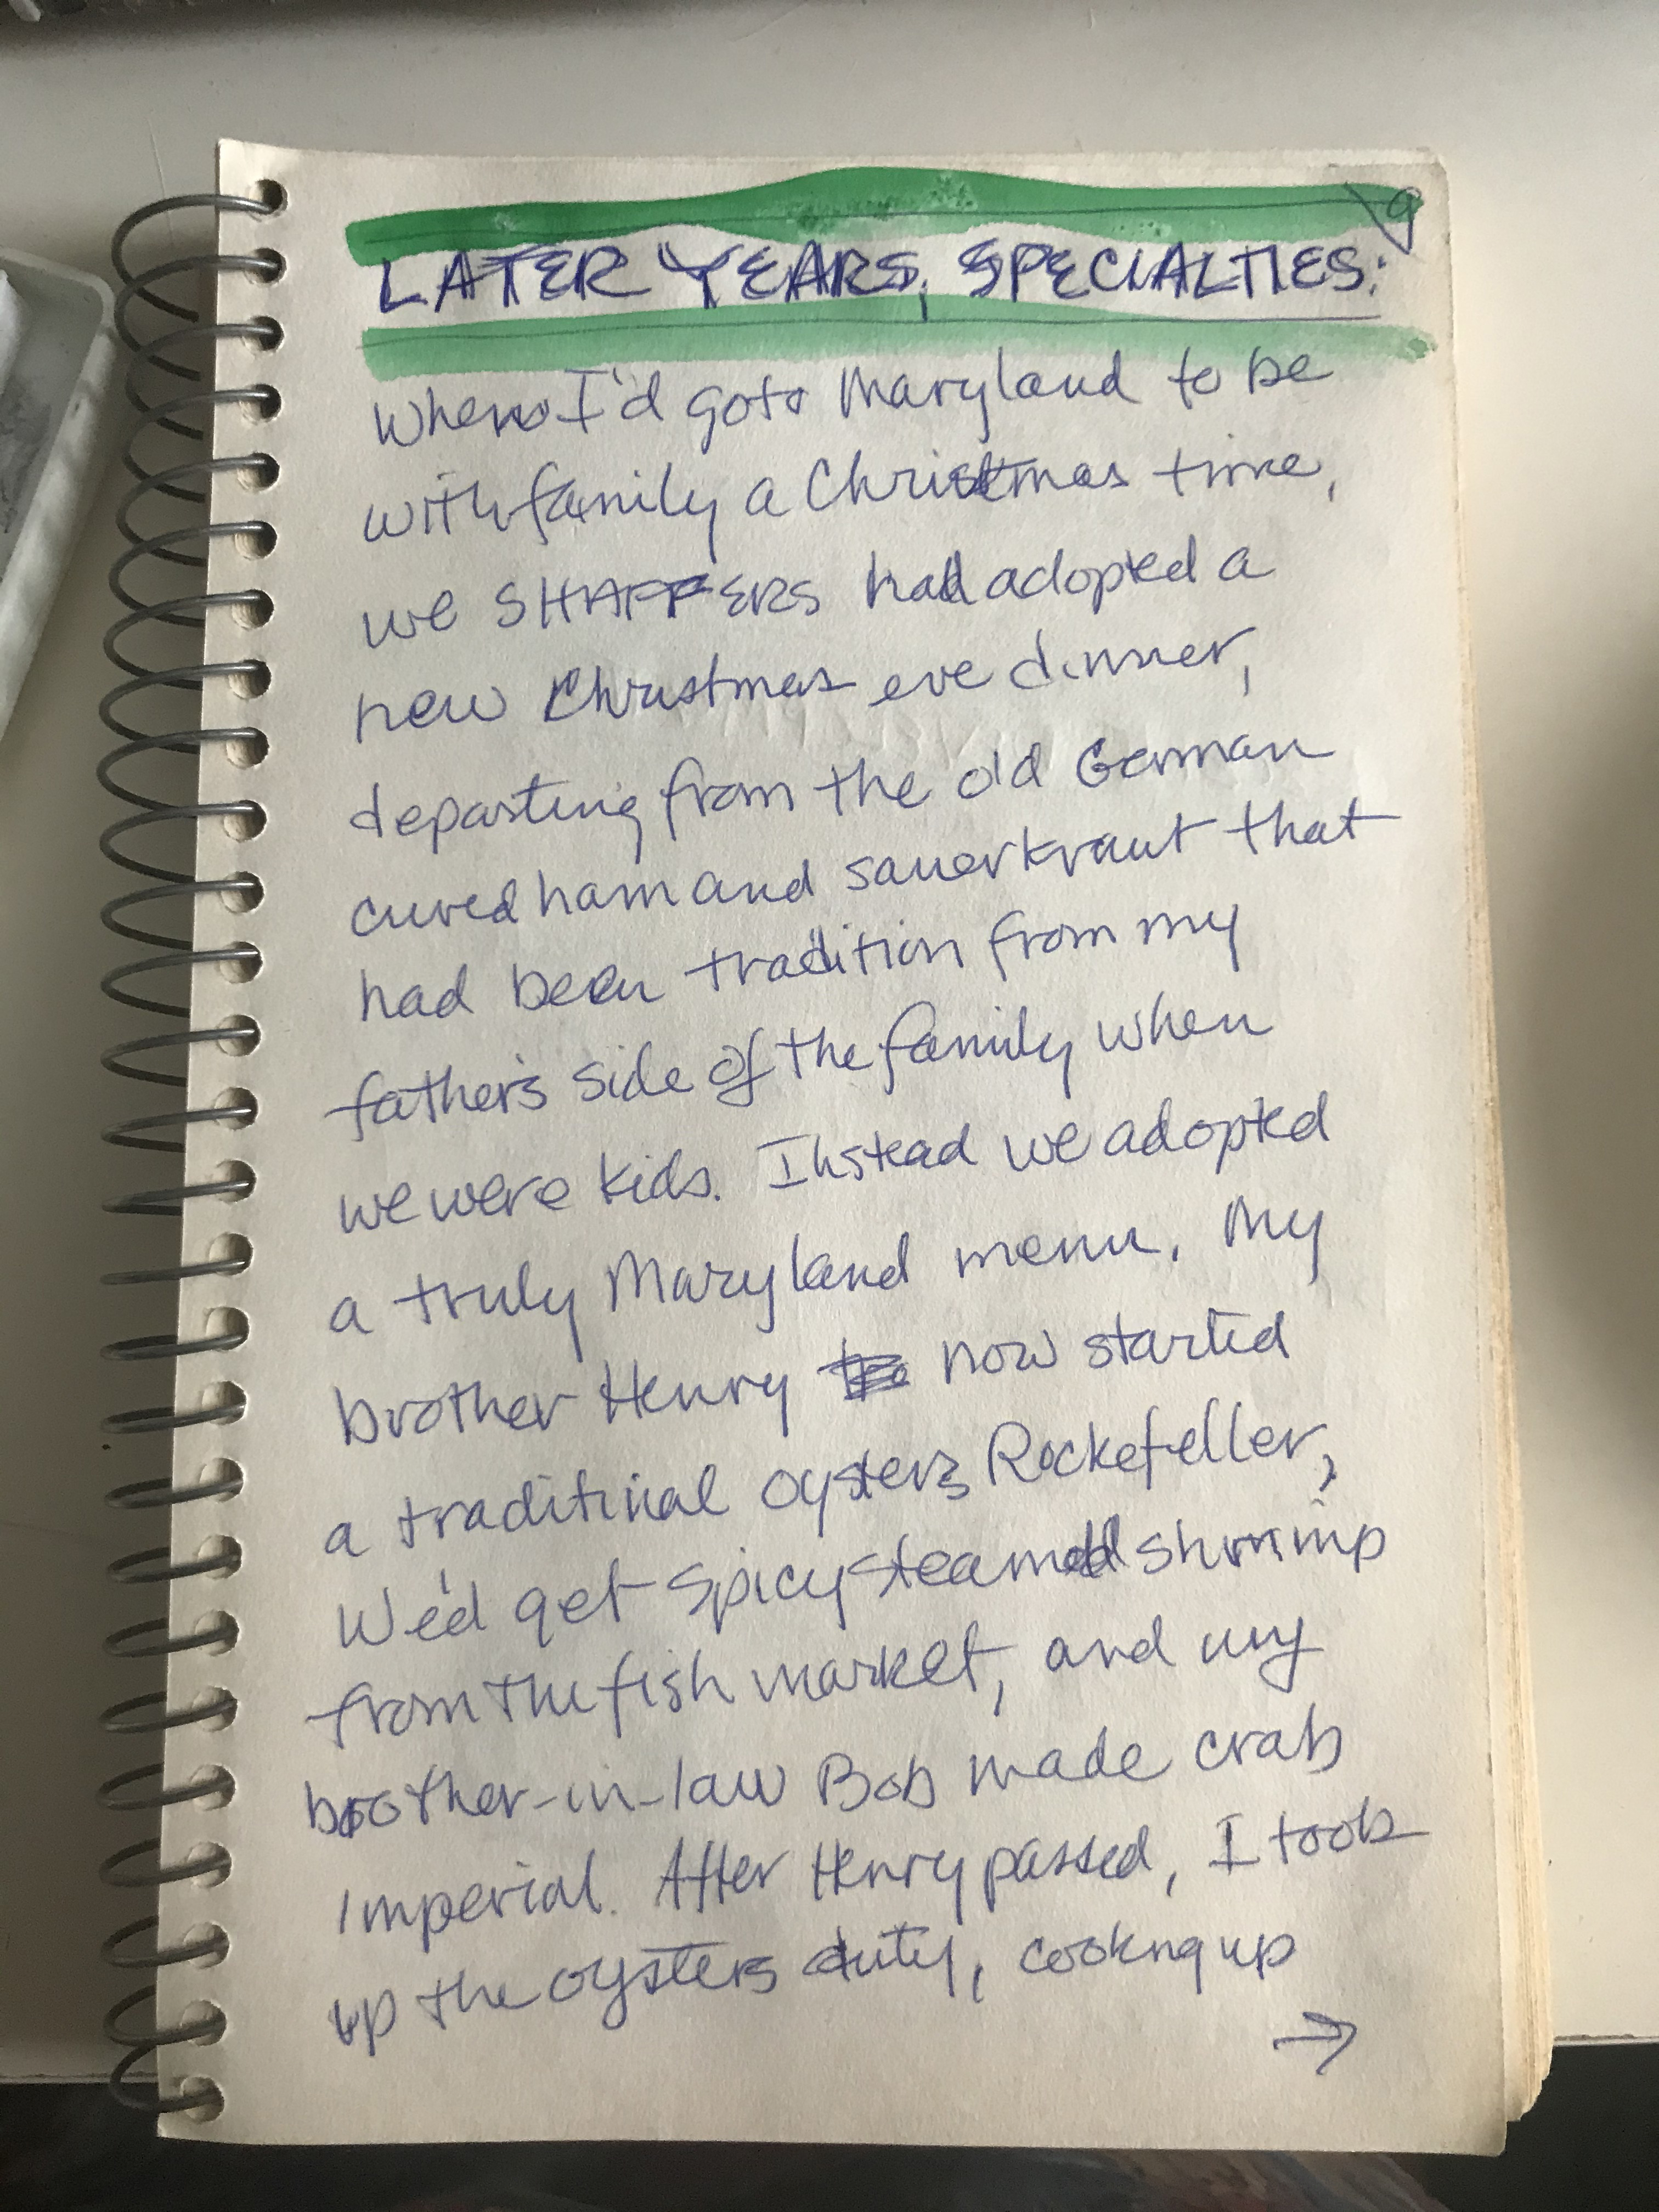 9
LATER YEARS, SPECIALTIES:
When I'd go to Maryland to be
with family a Christmas time,
we SHAFFERS had adopted a
new Christmas eve dinner,
departing from the old German
cured ham and sauerkraut that
had been tradition from my
father's side of the family when
we were kids. Instead we adopted
a truly Maryland menu. My
brother Henry now started
a traditinal oysters Rockefeller,
We'd get spicy steamed shrimp
from the fish market, and my
brother-in-law Bob made crab
imperial. After Henry passed, I took
up the oysters duty, cookng up
→